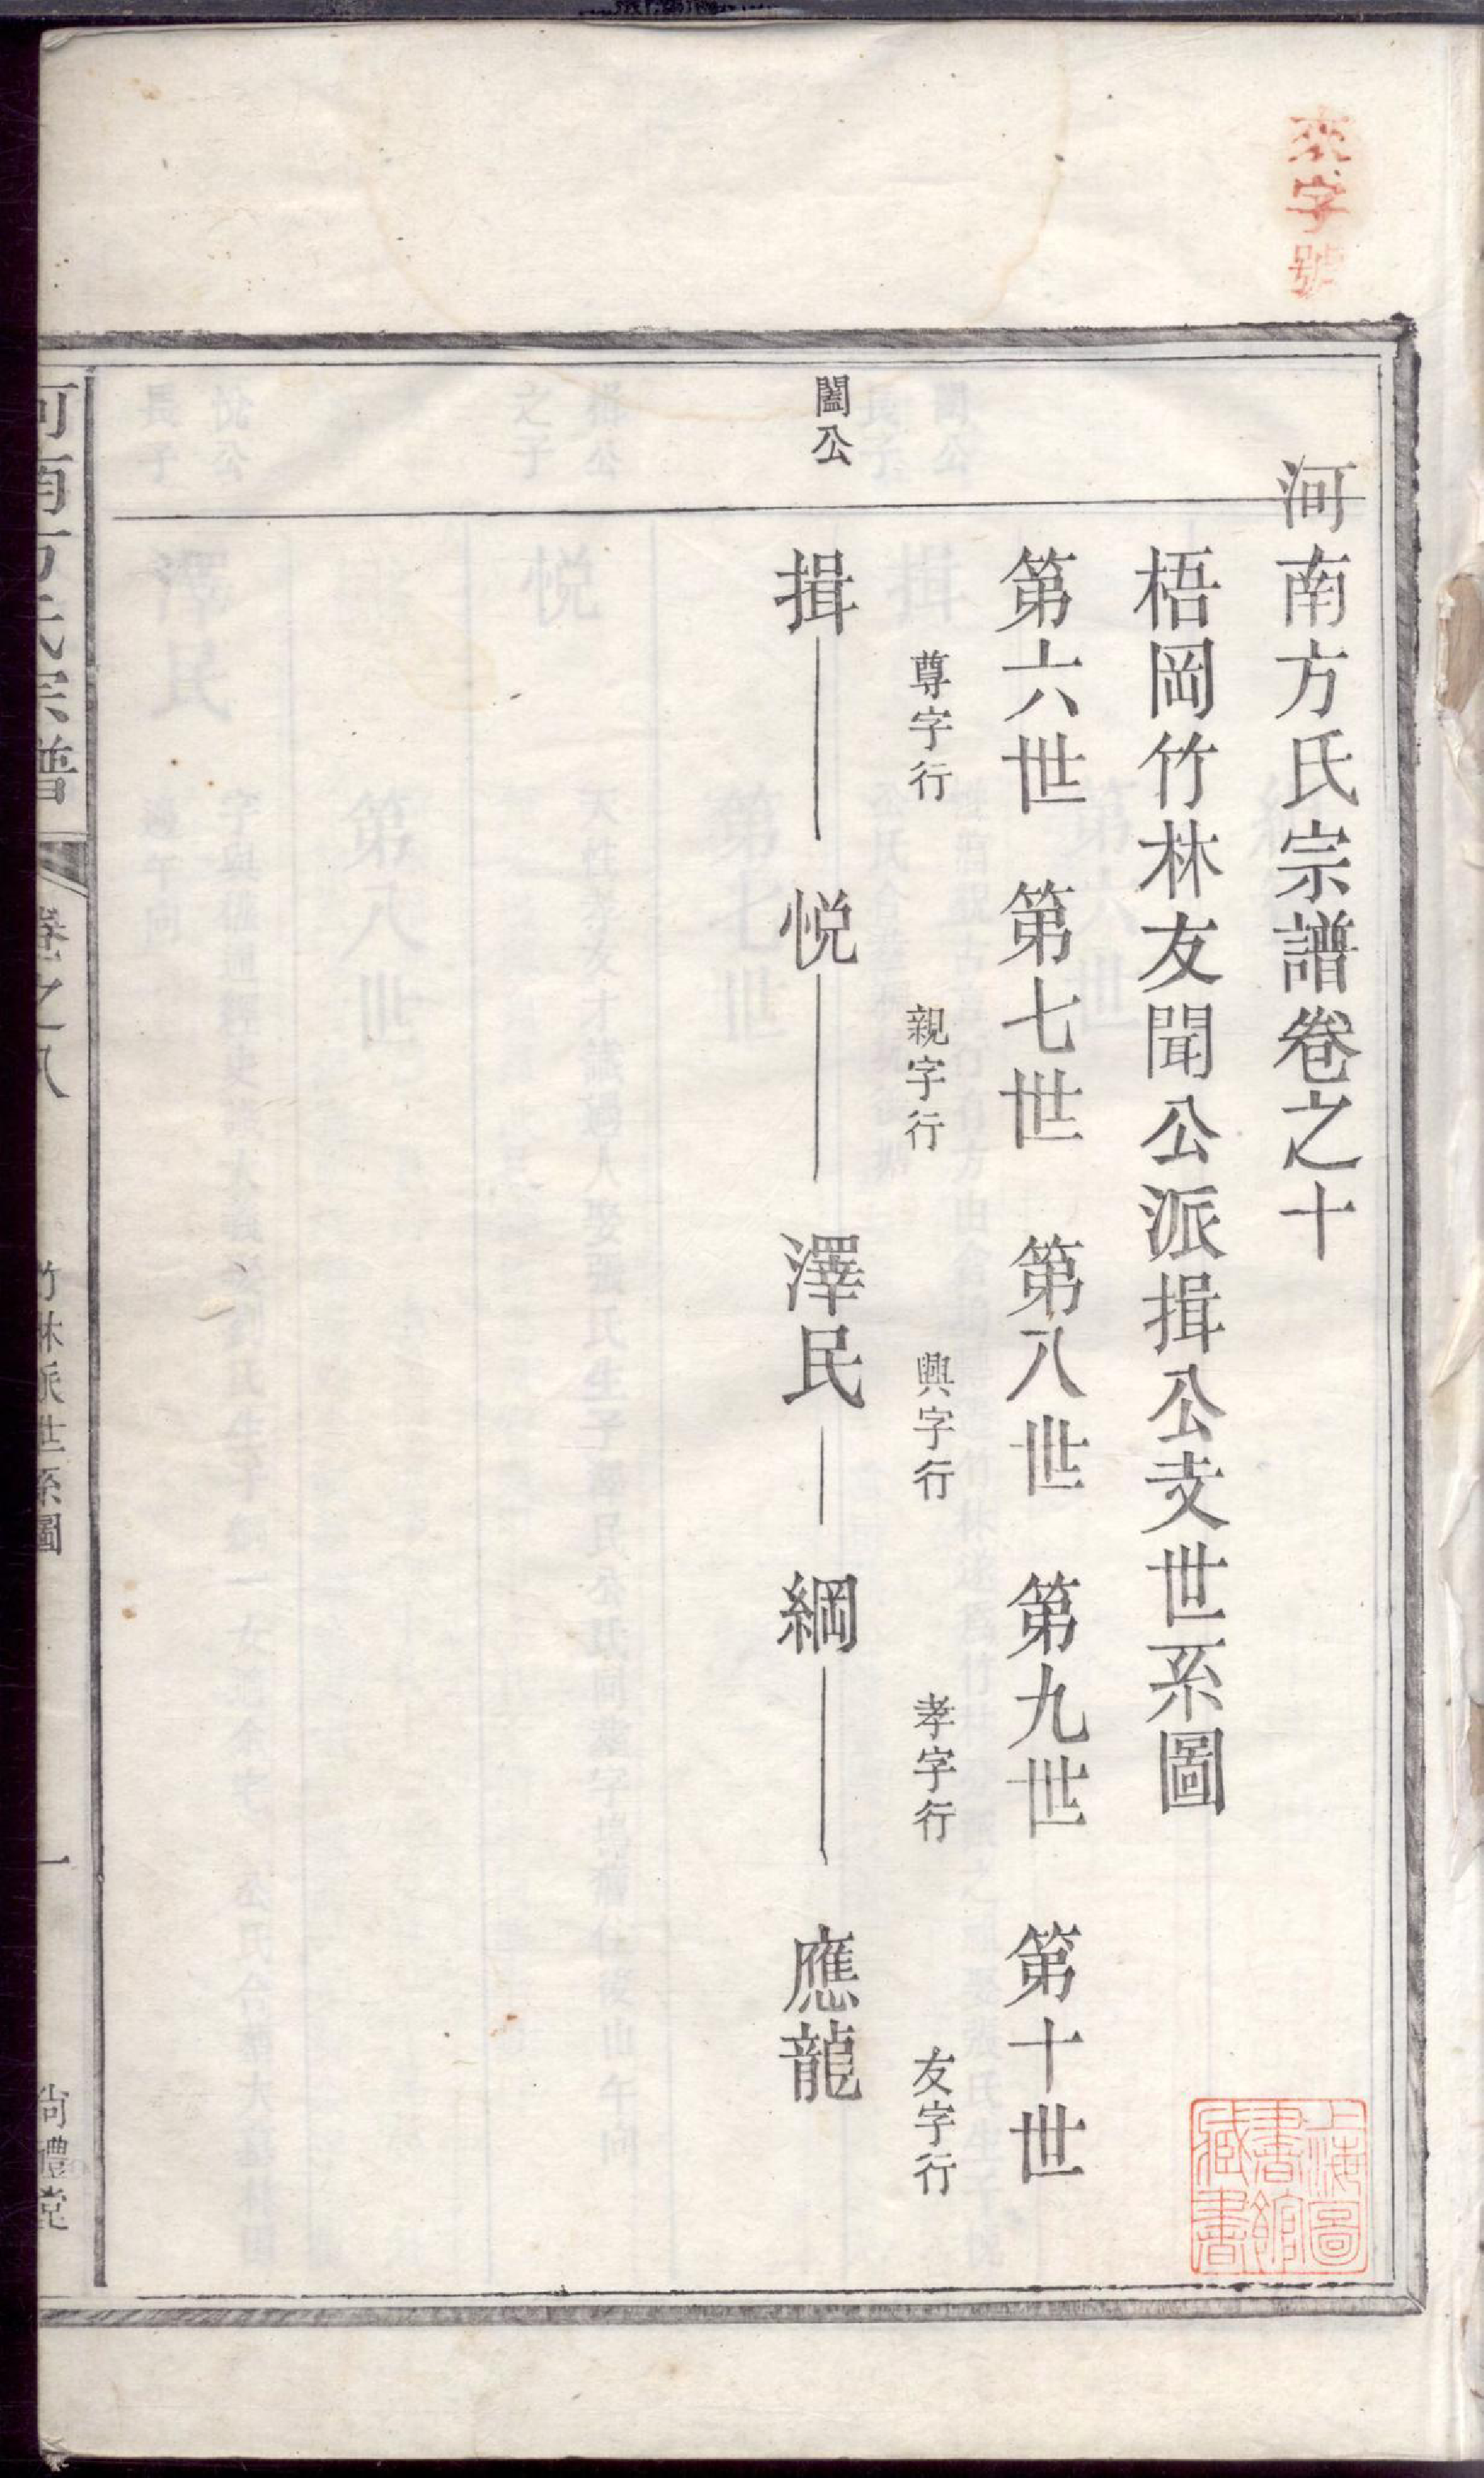 來字號
河南方氏宗譜卷之十
梧岡竹林友聞公派揖公支世系圖
第六世 第七世 第八世 第九世 第十世
尊字行 親字行 興字行 孝字行 友字行
闔公
揖 悦 澤民 綱 應龍
河南方氏宗譜 卷之八 竹林派世系圖 一 尚禮堂
上海圖書館藏書